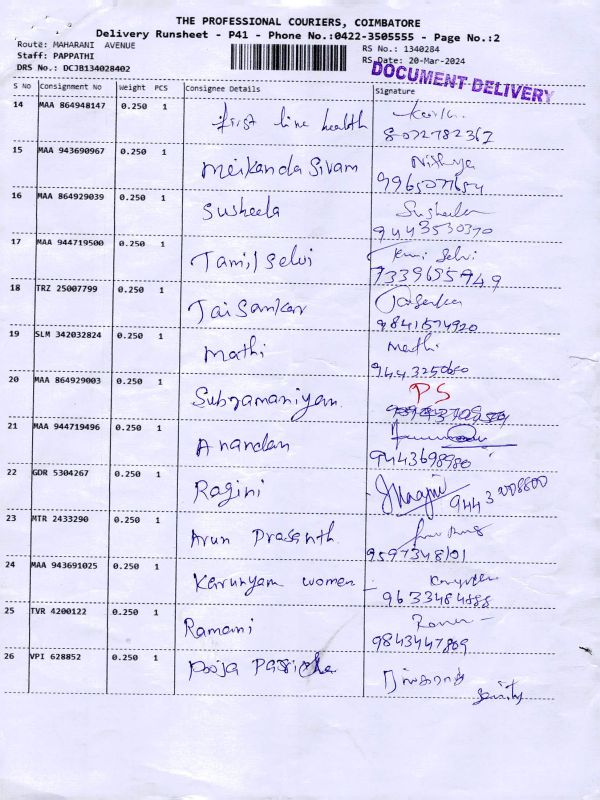 THE PROFESSIONAL COURIERS, COIMBATORE
Delivery Runsheet - P41 - Phone No.:0422-3505555 - Page No.:2
Route: MAHARANI AVENUE
RS No.: 1340284
Staff: PAPPATHI
RS Date: 20-Mar-2024
DRS No.: DCJB134028402
DOCUMENT DELIVERY
S No Consignment No Weight PCS Consignee Details Signature
14 MAA 864948147 0.250 1 first line health
8072782367
15 MAA 943690967 0.250 1 Meikanda Sivam Nithya
16 MAA 864929039 0.250 1 Susheela Susheela
9443530370
17 MAA 944719500 0.250 1 Tamil Selvi Selvi
7339655949
18 TRZ 25007799 0.250 1 Jai Sankar
9841574920
19 SLM 342032824 0.250 1 Mathi Mathi
20 MAA 864929003 0.250 1 Subramaniyam PS
21 MAA 944719496 0.250 1 Anandan
9443698980
22 GDR 5304267 0.250 1 Ragini
9443 208800
23 MTR 2433290 0.250 1 Arun Prasanth
9597348101
24 MAA 943691025 0.250 1 Karunyam women
9633484888
25 TVR 4200122 0.250 1 Ramani
9843447809
26 VPI 628852 0.250 1 Pooja